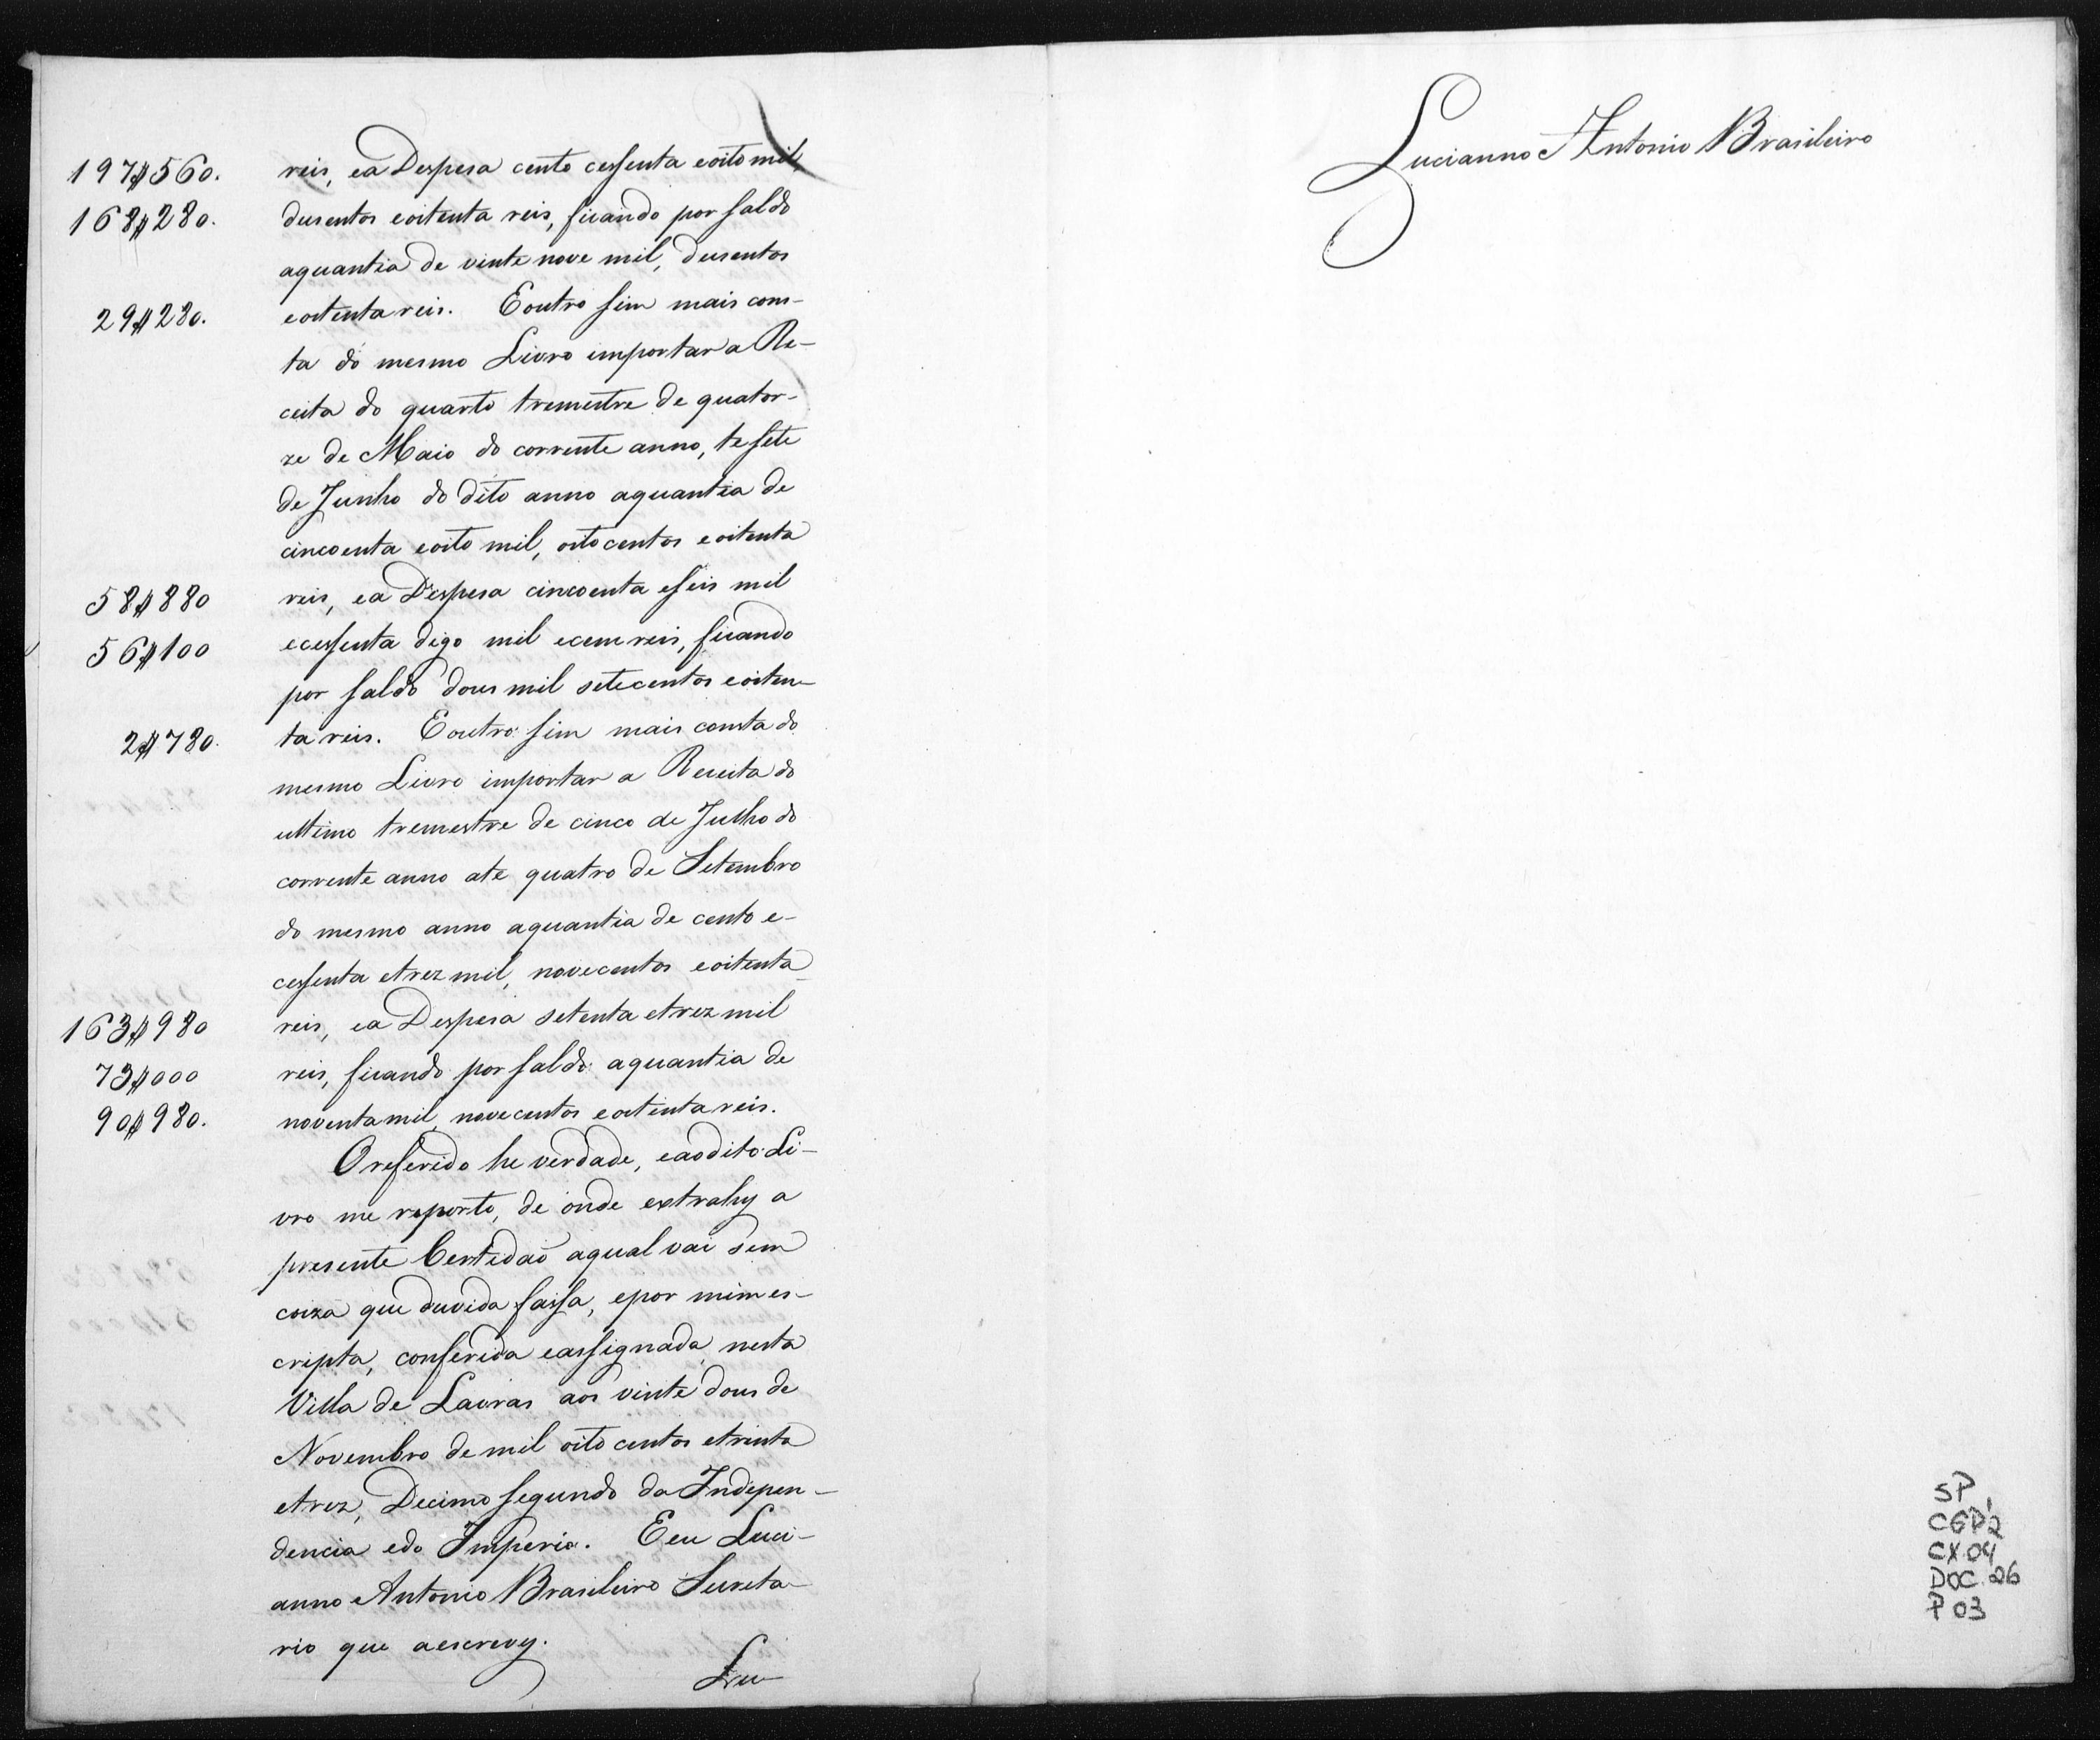 197$560. reis, ea Despesa cento cessenta eoito mil,
168$280. dusentos eoitenta reis, ficando por saldo
aquantia de vinte nove mil, dusentos
29$280. eoitenta reis. Eoutro sim mais cons-
ta do mesmo Livro importar a Re-
ceita do quarto tremestre de quator-
ze de Maio do corrente anno, te sete
de Junho do dito anno aquantia de
cincoenta eoito mil, oitocentos eoitenta
58$880 reis, ea Despesa cincoenta eseis mil
56$100 ecessenta digo mil ecem reis, ficando
por saldo dous mil setecentos eoiten-
2$780. ta reis. Eoutro sim mais consta do
mesmo Livro importar a Receita do
ultimo tremestre de cinco de Julho do
corrente anno ate quatro de Setembro
do mesmo anno aquantia de cento e-
cessenta etrez mil, novecentos eoitenta
163$980 reis, ea Despesa setenta etrez mil
73$000 reis, ficando por saldo aquantia de
90$980. noventa mil, novecentos eoitenta reis.
Oreferido he verdade, eaodito Li-
vro me reporto, de onde extrahy a
presente Certidaõ aqual vai sem
coiza que duvida faissa, epor mim es-
cripta, conferida eassignada nesta
Villa de Lavras aos vinte dous de
Novembro de mil oito centos etrinta
etrez, Decimo segundo da Indipen-
dencia edo Imperio. Eeu Luci-
anno Antonio Brasileiro Secreta-
rio que aescrevy.
Lu-
Lucianno Antonio Brasileiro
SP,
CGP2
CX.04
DOC.26
P 03